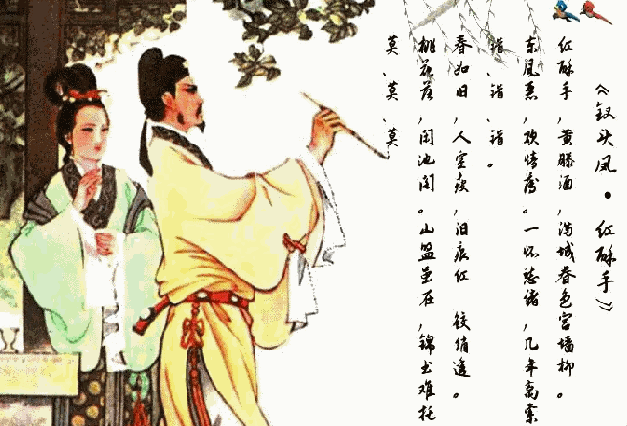 《钗头凤•红酥手》
红酥手，黄滕酒，满城春色宫墙柳。
东风恶，欢情薄。一怀愁绪，几年离索
错、错、错。
春如旧，人空瘦，泪痕红 绞绡透。
桃花落，闲池阁。山盟虽在，锦书难托
莫、莫、莫